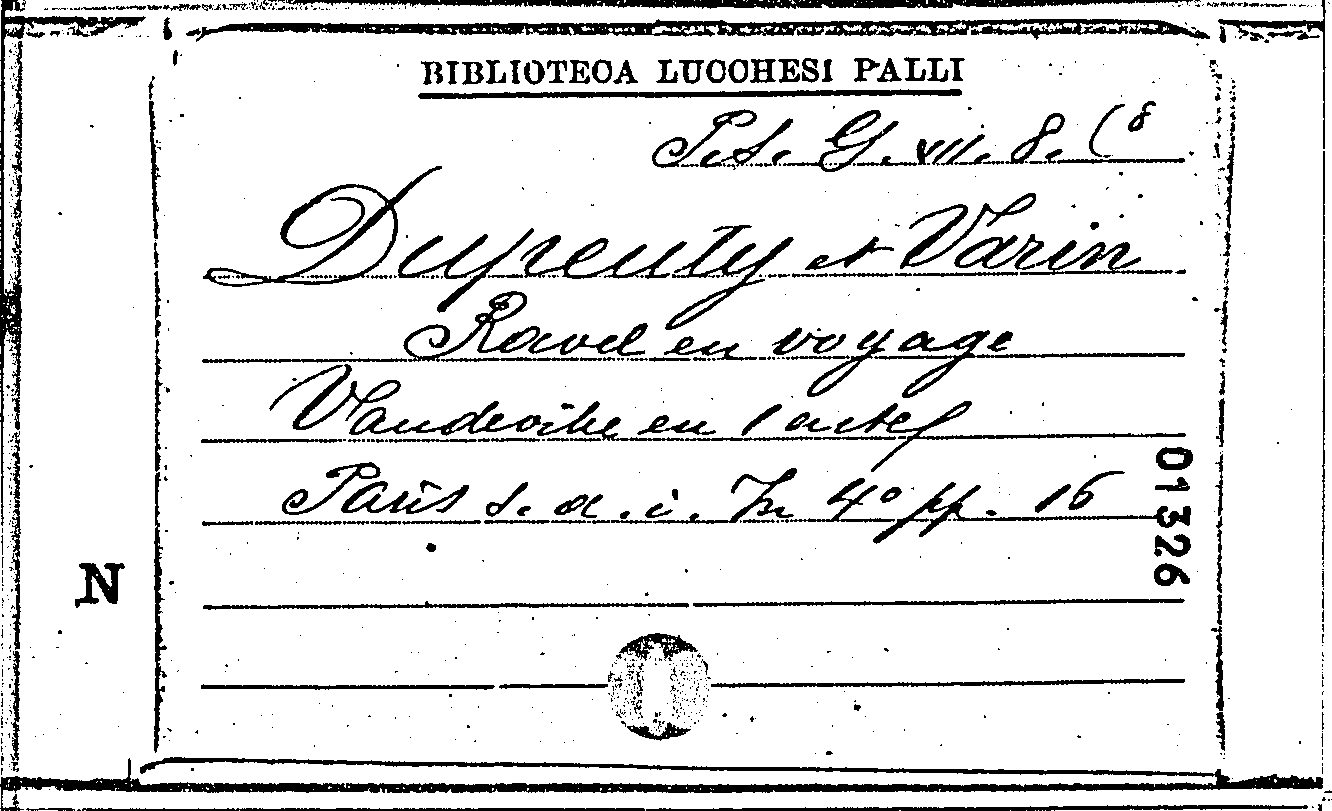 BIBLIOTECA LUCCHESI PALLI
P.t. G. VII. 8. (8
Dupeuty et Varin
Ravel en voyage
Vaudeville en 1 acte
Paris s. d. i. In 4° pp. 16
01326
N